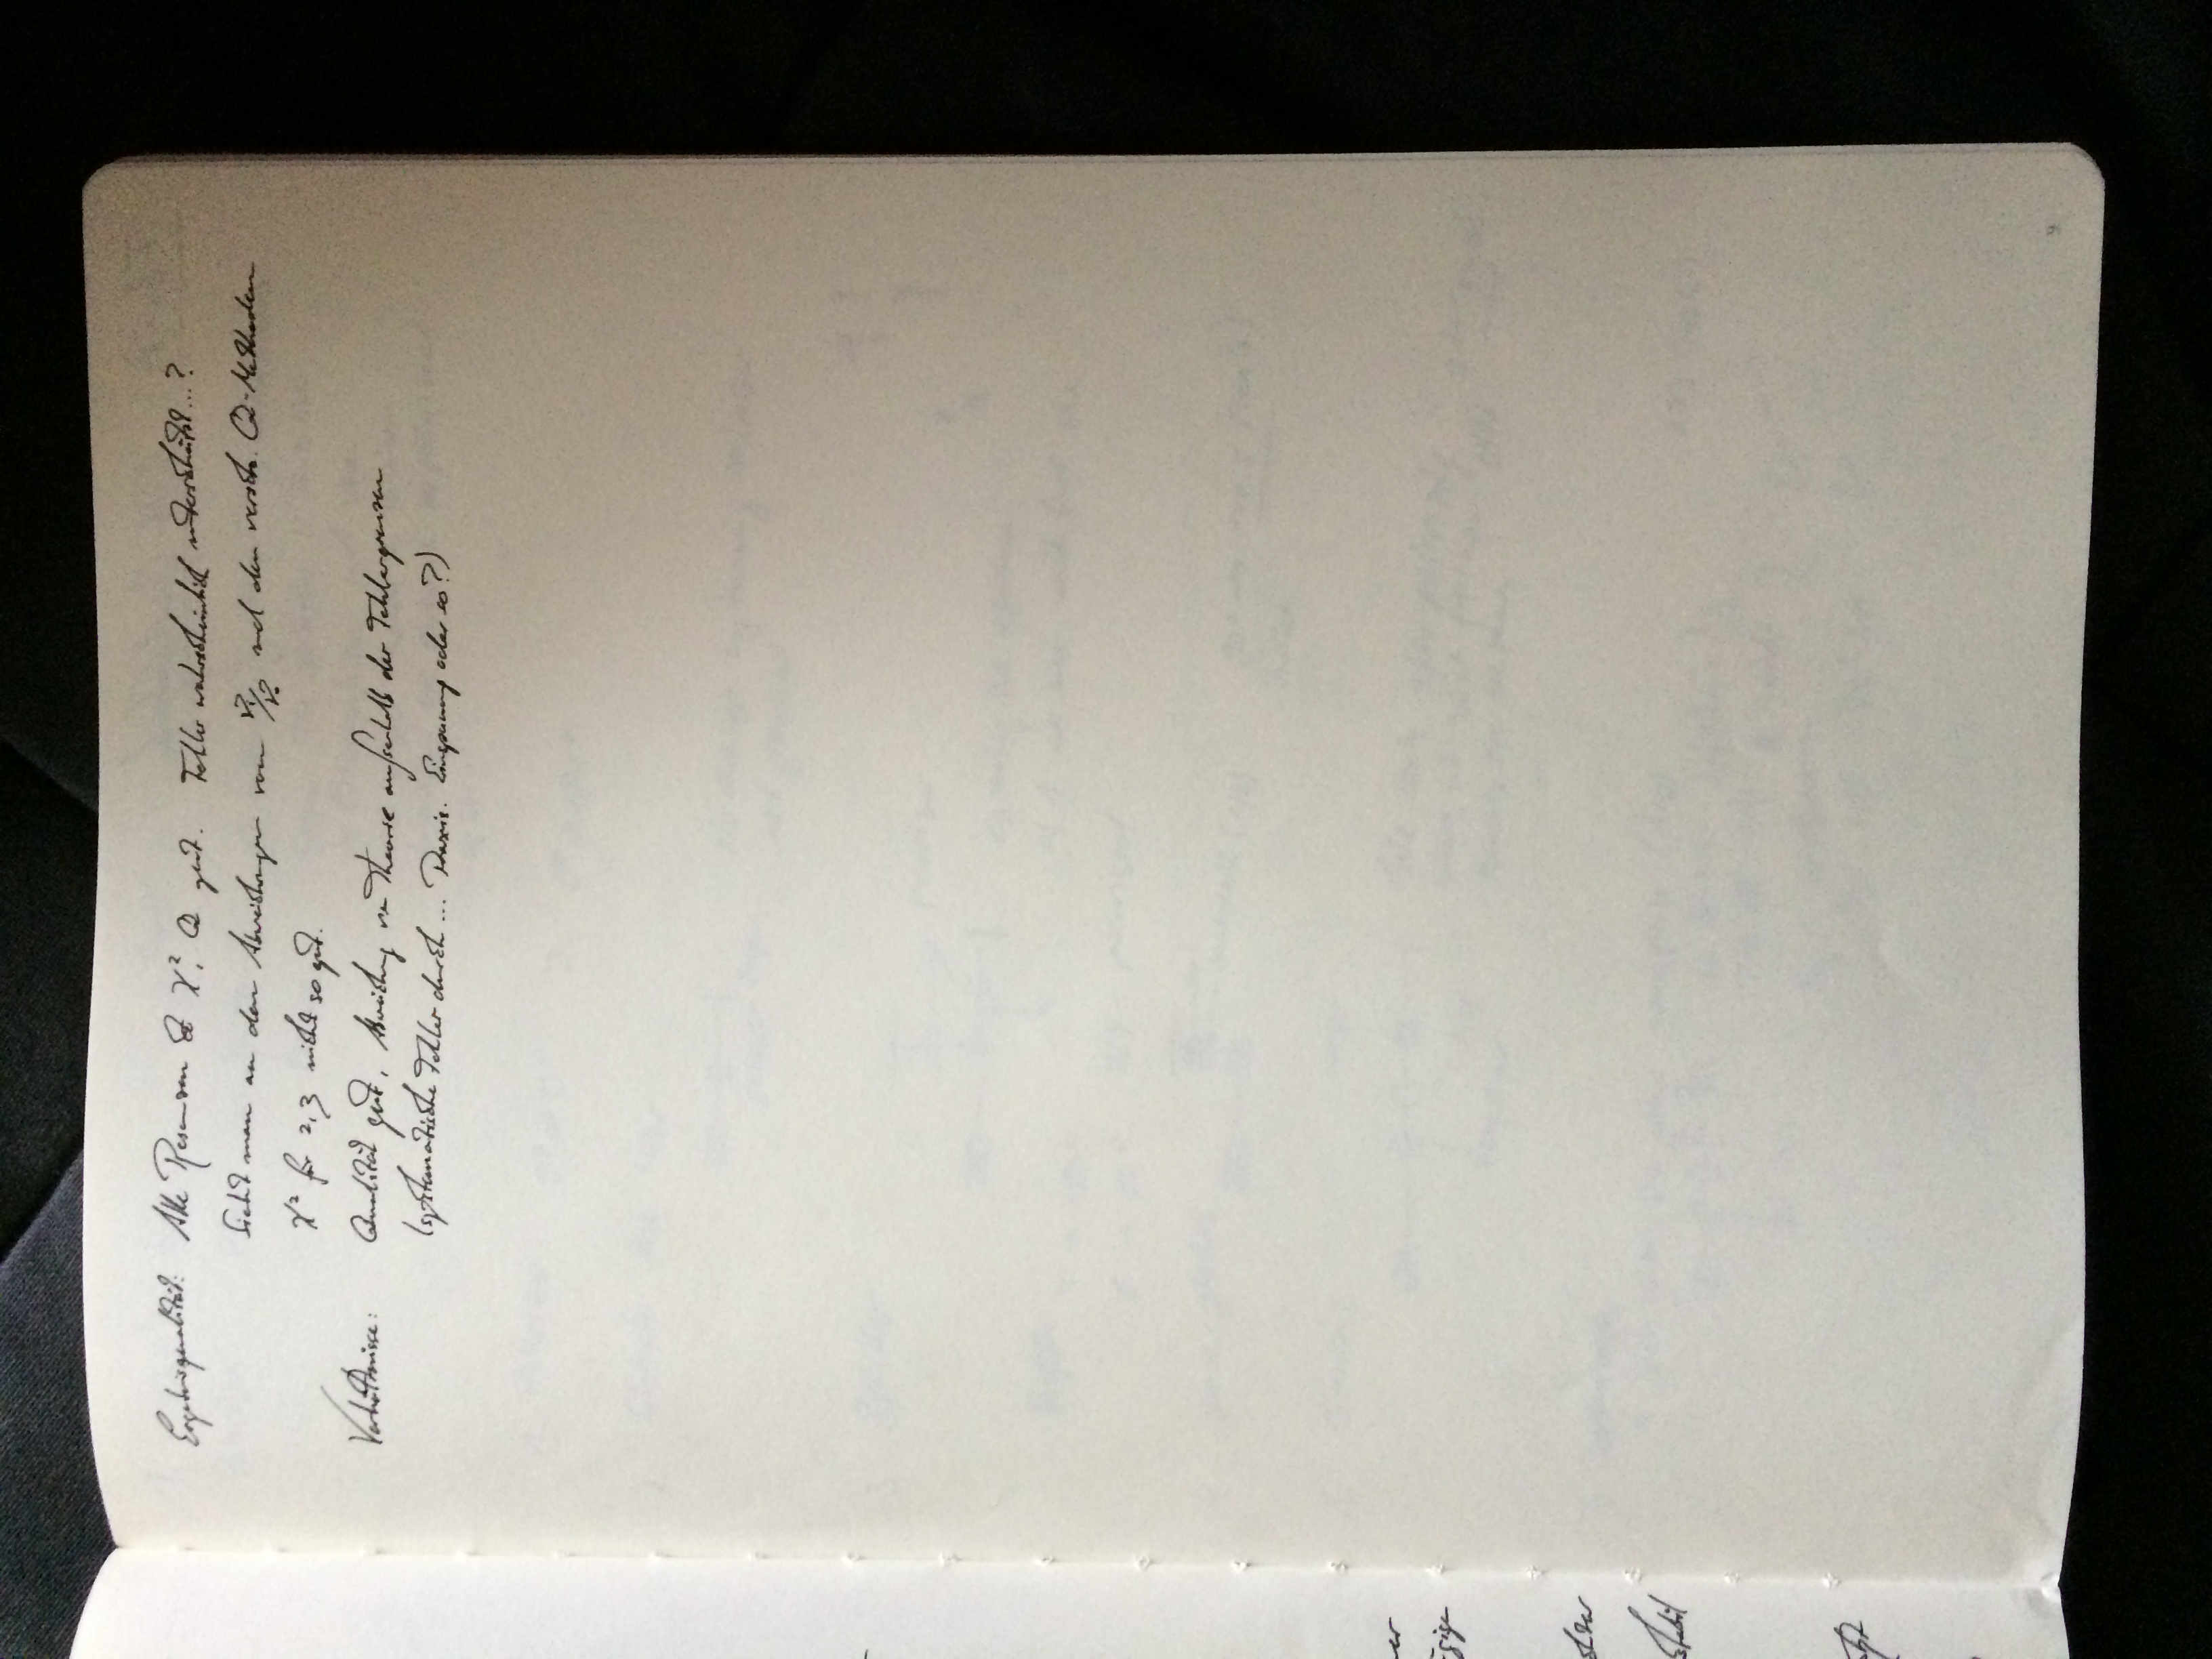 Ergebnisqualität: Alle Resonanzen χ², Q gut. Fehler wahrscheinlich unterschätzt...?
Sieht man an den Abweichungen von ν₁/ν₂ und den versch. Q-Methoden
χ² für 2,3 nicht so gut.
Verhältnisse: Qualität gut, Abweichung von Theorie außerhalb der Fehlergrenzen
(systematische Fehler durch... Einspannung oder so?)